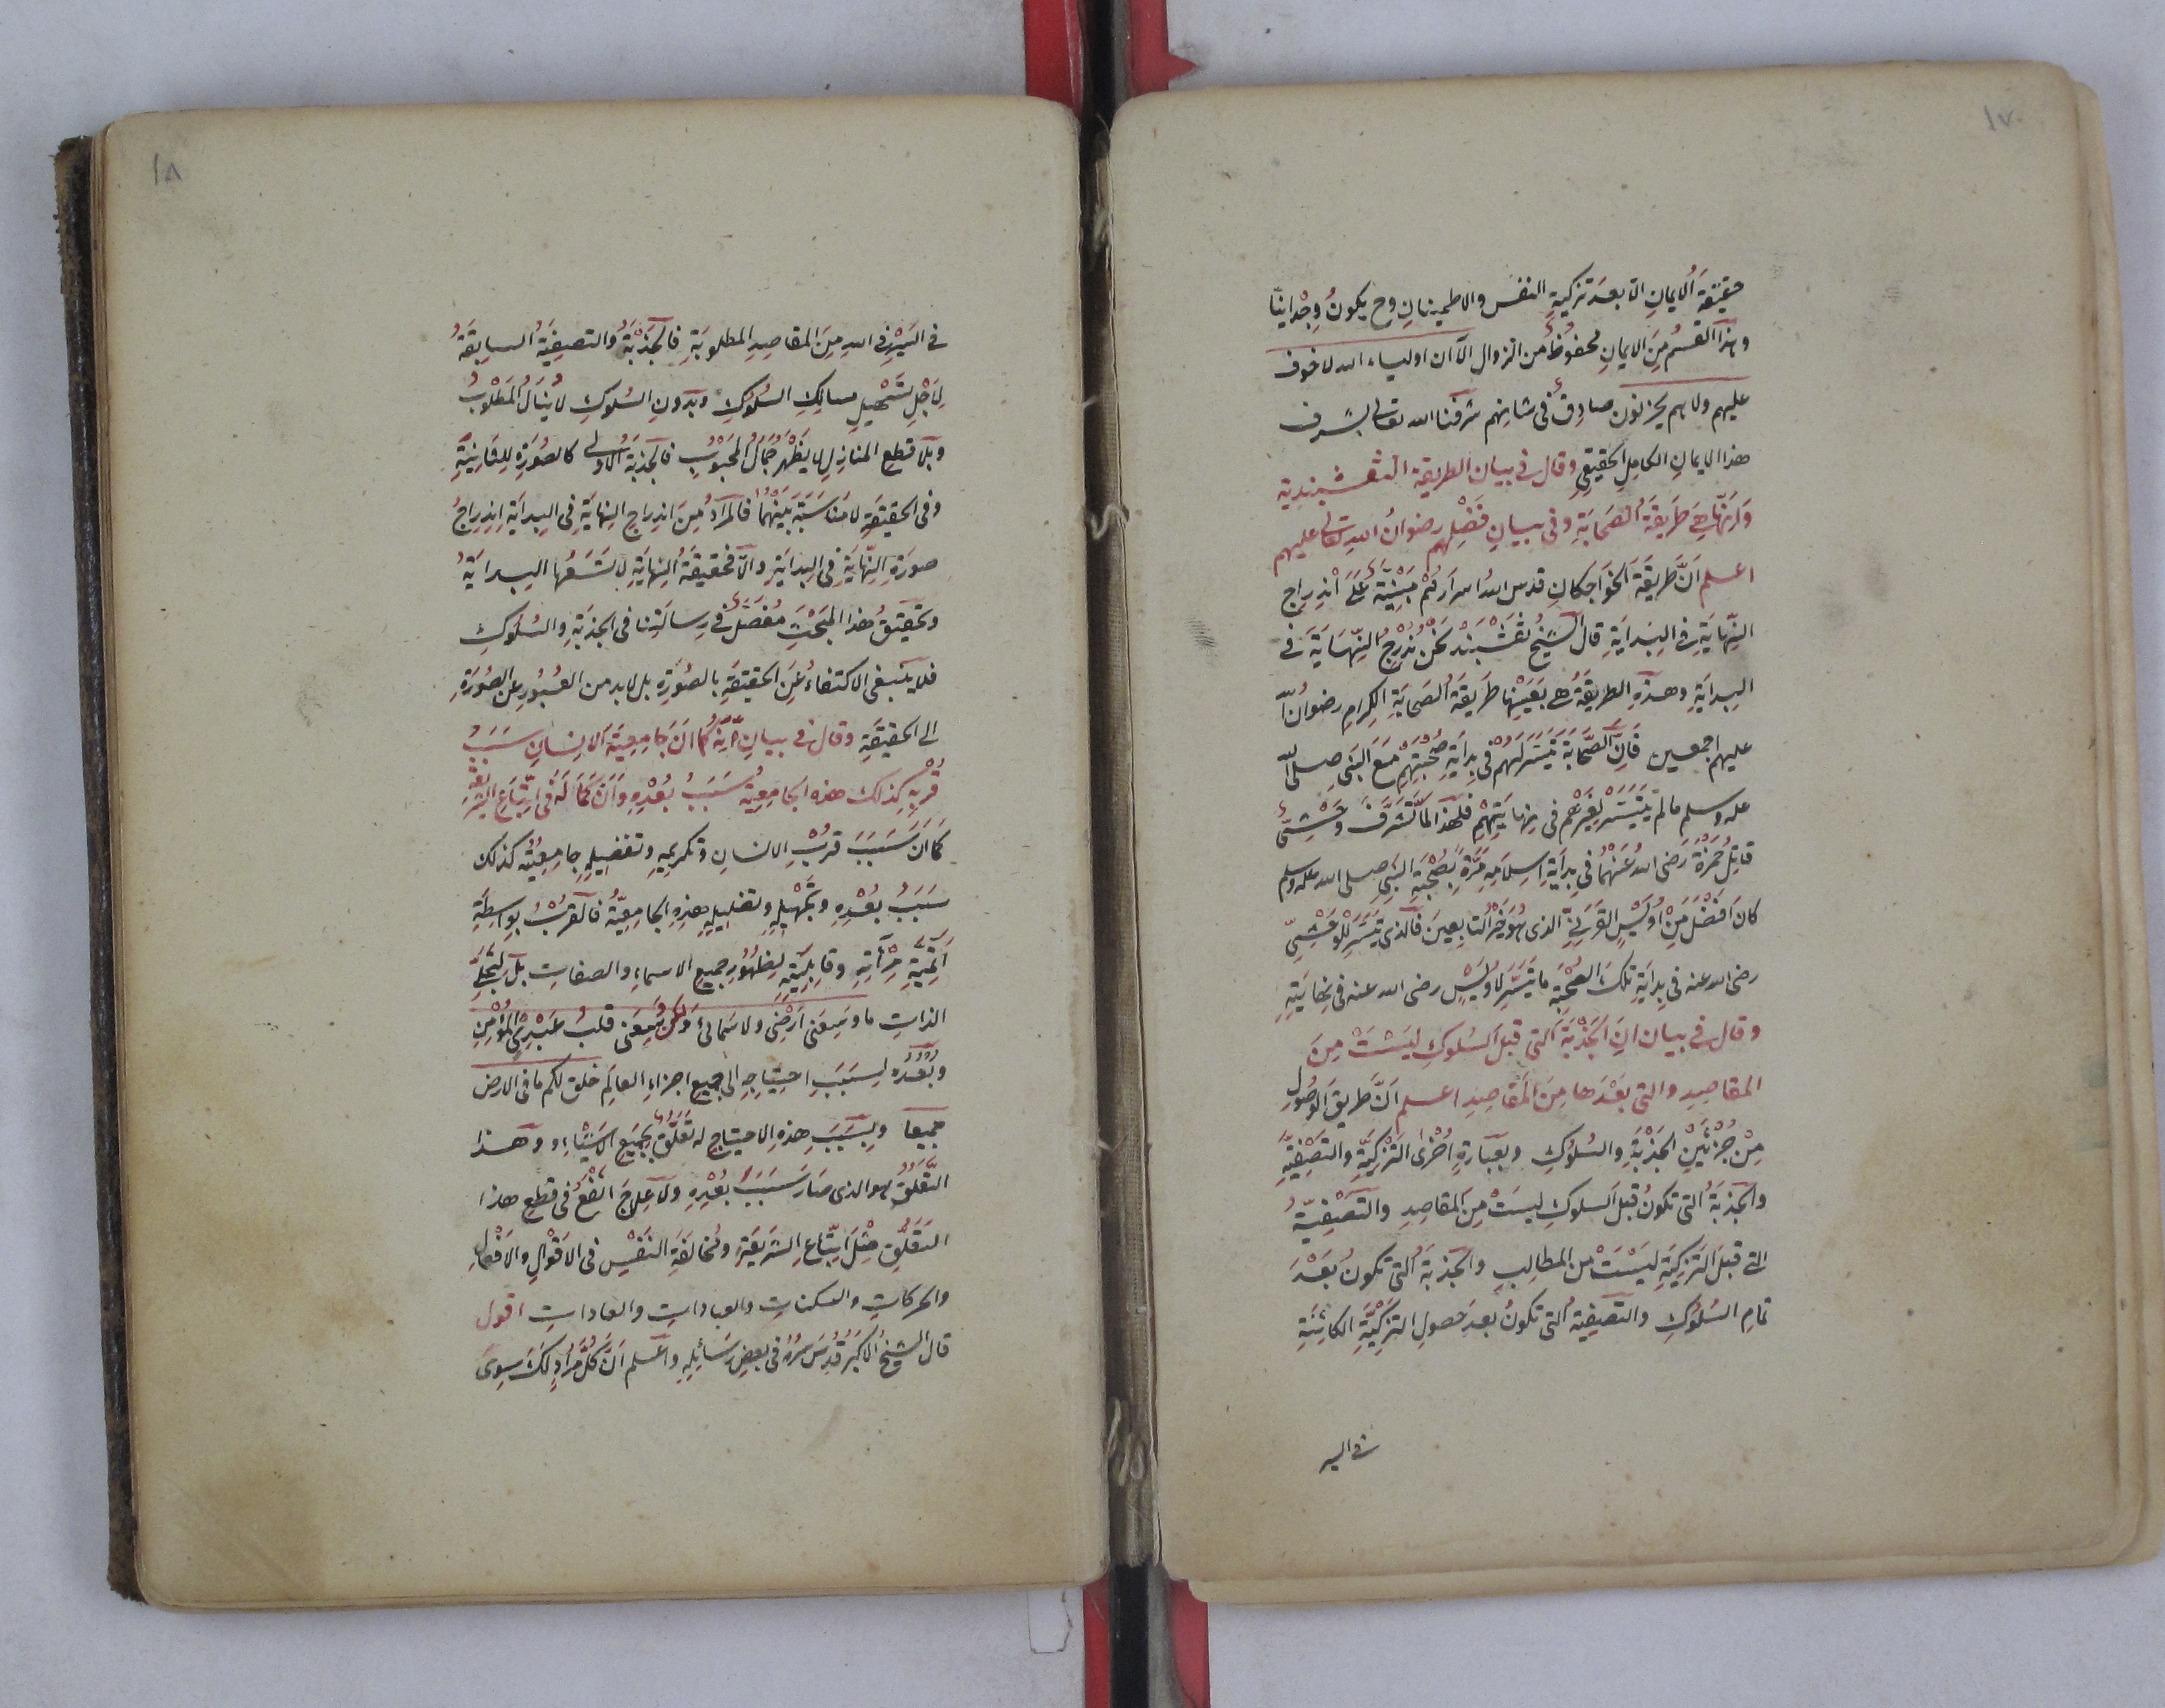 ١٧
حقيقة الايمان الا بعد تزكية النفس والاطمينان وح يكون وجدانيا
وهذا القسم من الايمان محفوظ من الزوال الا ان اولياء الله لا خوف
عليهم ولا هم يحزنون صادق في شانهم شرفنا الله تعالى بشرف
هذا الايمان الكامل الحقيقي وقال في بيان الطريقة النقشبندية
وانها هي طريقة الصحابة وفي بيان فضلهم رضوان الله تعالى عليهم
اعلم ان طريقة الخواجكان قدس الله اسرارهم مبنية على اندراج
النهاية في البداية قال الشيخ نقشبند نحن ندرج النهاية في
البداية وهذه الطريقة هي بعينها طريقة الصحابة الكرام رضوان الله
عليهم اجمعين فان الصحابة تيسر لهم في بداية صحبتهم مع النبي صلى الله
عليه وسلم ما لم يتيسر لغيرهم في نهايتهم فلهذا لما تشرف وحشي
قاتل حمزة رضى الله عنهما في بداية اسلامه مرة بصحبة النبي صلى الله عليه وسلم
كان افضل من اويس القرني الذى هو خير التابعين فالذى تيسر للوحشي
رضى الله عنه في بداية تلك الصحبة ما تيسر لاويس رضى الله عنه في نهايته
وقال في بيان ان الجذبة التى قبل السلوك ليست من
المقاصد والتى بعدها من المقاصد اعلم ان طريق الوصول
من جزئين الجذبة والسلوك وبعبارة اخرى التزكية والتصفية
والجذبة التى تكون قبل السلوك ليست من المقاصد والتصفية
التى قبل التزكية ليست من المطالب والجذبة التى تكون بعد
تمام السلوك والتصفية التى تكون بعد حصول التزكية الكائنة
في السير
١٨
في السير في الله من المقاصد المطلوبة فالجذبة والتصفية السابقة
لاجل تسهيل مسالك السلوك وبدون السلوك لا ينال المطلوب
وبلا قطع المنازل لا يظهر جمال المحبوب فالجذبة الاولى كالصورة للثانية
وفي الحقيقة لا مناسبة بينهما فالمراد من اندراج النهاية في البداية اندراج
صورة النهاية في البداية والا فحقيقة النهاية لا تسعها البداية
وتحقيق هذا المبحث مفصل في رسالتنا في الجذبة والسلوك
فلا ينبغى الاكتفاء عن الحقيقة بالصورة بل لا بد من العبور عن الصورة
الى الحقيقة وقال في بيان انه كما ان جامعية الانسان سبب
قربه كذلك هذه الجامعية سبب بعده وان كماله في اتباع الشريعة
كما ان سبب قرب الانسان وتكريمه وتفضيله جامعيته كذلك
سبب بعده وتجهيله وتضليله هذه الجامعية فالقرب بواسطة
اتمية مرآته وقابليته لظهور جميع الاسماء والصفات بل لتجلي
الذات ما وسعنى ارضى ولا سمائى ولكن يسعنى قلب عبدى المؤمن
وبعده لسبب احتياجه الى جميع اجزاء العالم خلق لكم ما فى الارض
جميعا وبسبب هذه الاحتياج له تعلق بجميع الاشياء وهذا
التعلق هو الذى صار سبب بعده ولا علاج انفع في قطع هذا
التعلق مثل اتباع الشريعة ومخالفة النفس في الاقوال والافعال
والحركات والسكنات والعبادات والعادات اقول
قال الشيخ الاكبر قدس سره في بعض رسائله واعلم ان كل مراد لك سوى